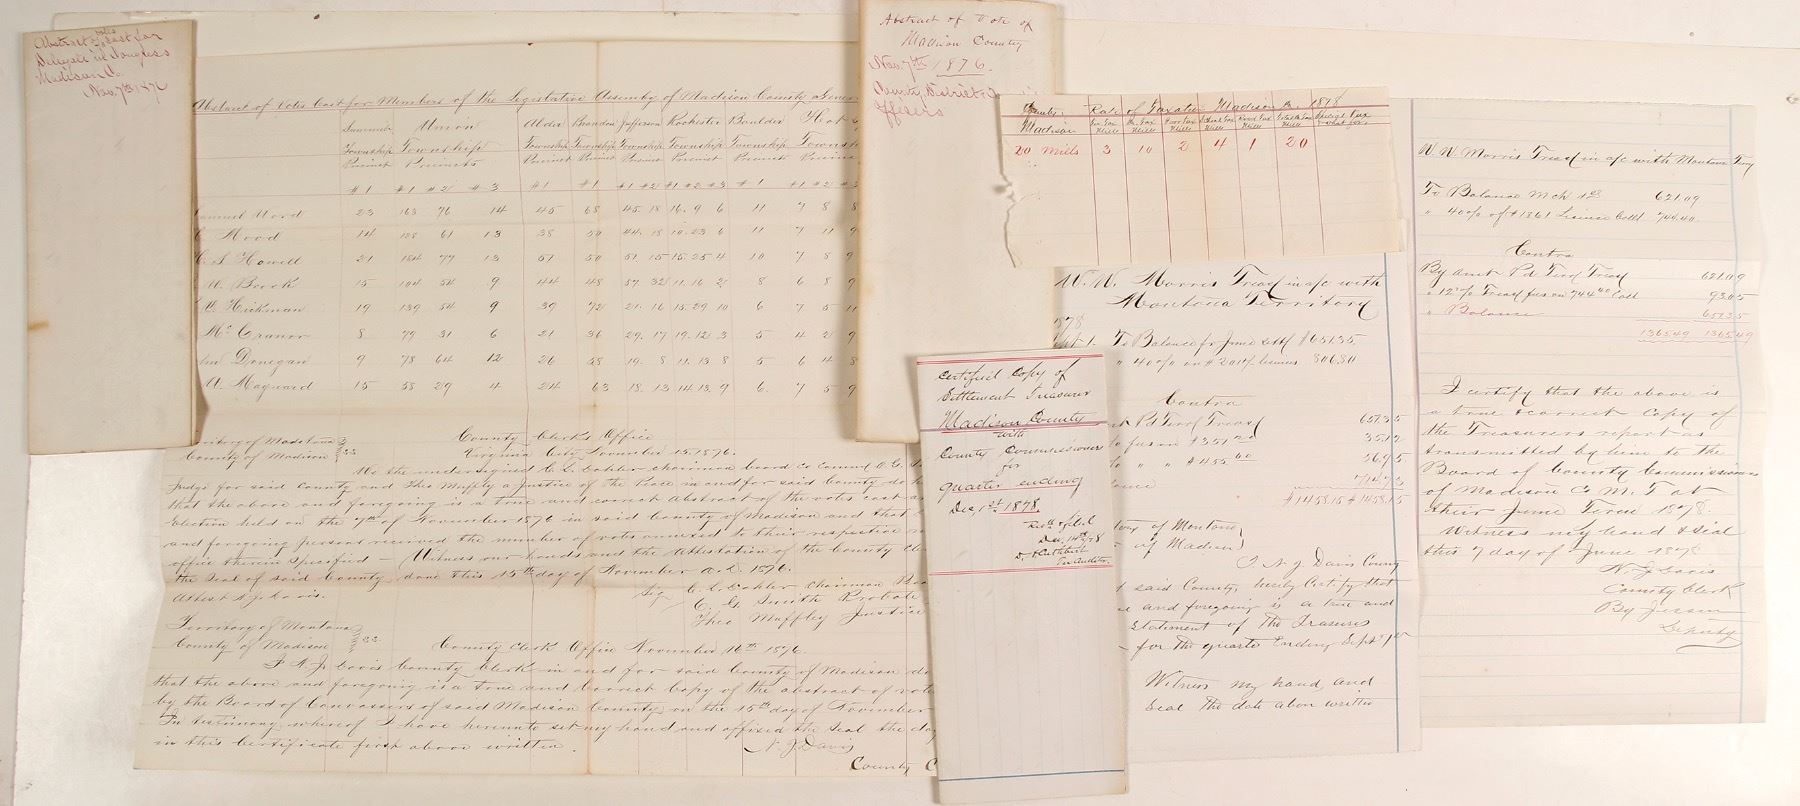 Abstract of votes cast for
Delegate in Congress
Madison Co.
Nov. 7th 1876
Abstract of Votes Cast for Members of the Legislative Assembly of Madison County
Summit Union Alder Brandon Jefferson Rochester Boulder Hot
Township Township Township Township Township Township Township
Precinct Precincts Precinct Precinct Precinct Precinct Precincts
#1 #1 #2 #3 #1 #1 #1 #2 #1 #2 #3 #1 #1 #2 #3
Samuel Word 23 163 76 14 45 68 45 18 16 9 6 11 7 8 8
Hood 14 128 61 13 38 50 44 18 10 23 6 11 7 11 9
S Howell 21 184 77 13 51 50 51 15 15 25 4 10 7 8 9
15 104 54 9 44 48 57 32 11 16 2 8 6 8 9
Hickman 19 139 54 9 39 72 21 16 15 29 10 6 7 5 11
McCranor 8 79 31 6 21 36 29 17 19 12 3 5 4 2 9
Donegan 9 78 64 12 26 58 19 8 11 13 8 5 6 4 8
Hayward 15 58 29 4 24 63 18 13 14 13 9 6 7 5 9
Territory of Montana
County of Madison } SS
County Clerks Office
Virginia City November 15. 1876.
We the undersigned C. L. Dahler chairman board Co Comms
Judge for said County and Theo Muffly a Justice of the Peace in and for said County do
that the above and foregoing is a true and correct abstract of the votes cast
Election held on the 7th of November 1876 in said County of Madison and that
and foregoing persons received the number of votes annexed to their respective
office therein specified - Witness our hands and the attestation of the County
the seal of said County, done this 15th day of November A.D. 1876.
Attest N. J. Davis.
C. L. Dahler Chairman
C. G. Smith Probate
Theo Muffley Justice
Territory of Montana
County of Madison } SS.
County Clerk Office November 16th 1876.
I N. J. Davis County Clerk in and for said County of Madison do
that the above and foregoing is a true and correct copy of the abstract of vote
by the Board of Canvassers of said Madison County on the 15th day of November
In testimony whereof I have hereunto set my hand and affixed the seal the day
in this certificate first above written.
N. J. Davis
County C
Abstract of Vote of
Madison County
Nov. 7th 1876.
County, District &
Officers
County Rate of Taxation Madison Co. 1878
Madison
20 Mills 3 10 2 4 1 20
Certified Copy of
Settlement Treasurer
Madison County
with
County Commissioner
for
quarter ending
Dec, 1st 1878.
Dec, 14th/78
W. W. Morris Treas in a/c with
Montana Territory
1878
To Balance fr June Settl $651.35
" 40% on $ 2017 Licenses 806.80
Contra
Pd Terr Treas 651.35
$ 351 20 35.12
" " $ 455 60 56.95
714.73
$1458.15 $1458.15
of Montana
of Madison
I N. J. Davis County
said County, hereby certify that
and foregoing is a true and
statement of the Treasurer
for the quarter Ending Sept 1st
Witness my hand and
seal the date above written
W. W. Morris Treas in a/c with Montana Terry
To Balance Mch 1st 621.09
" 40% of $1861 License Colld 744.40
Contra
By amt Pd Terr Treas 621.09
" 12½% Treas fees on 744 40 Colld 93.05
" Balance 651.35
1365.49 1365.49
I certify that the above is
a true & correct copy of
the Treasurers report as
transmitted by him to the
Board of County Commissioners
of Madison Co M. T at
their June Term 1878.
Witness my hand & seal
this 7 day of June 1878
N. J. Davis
County Clerk
By
Deputy